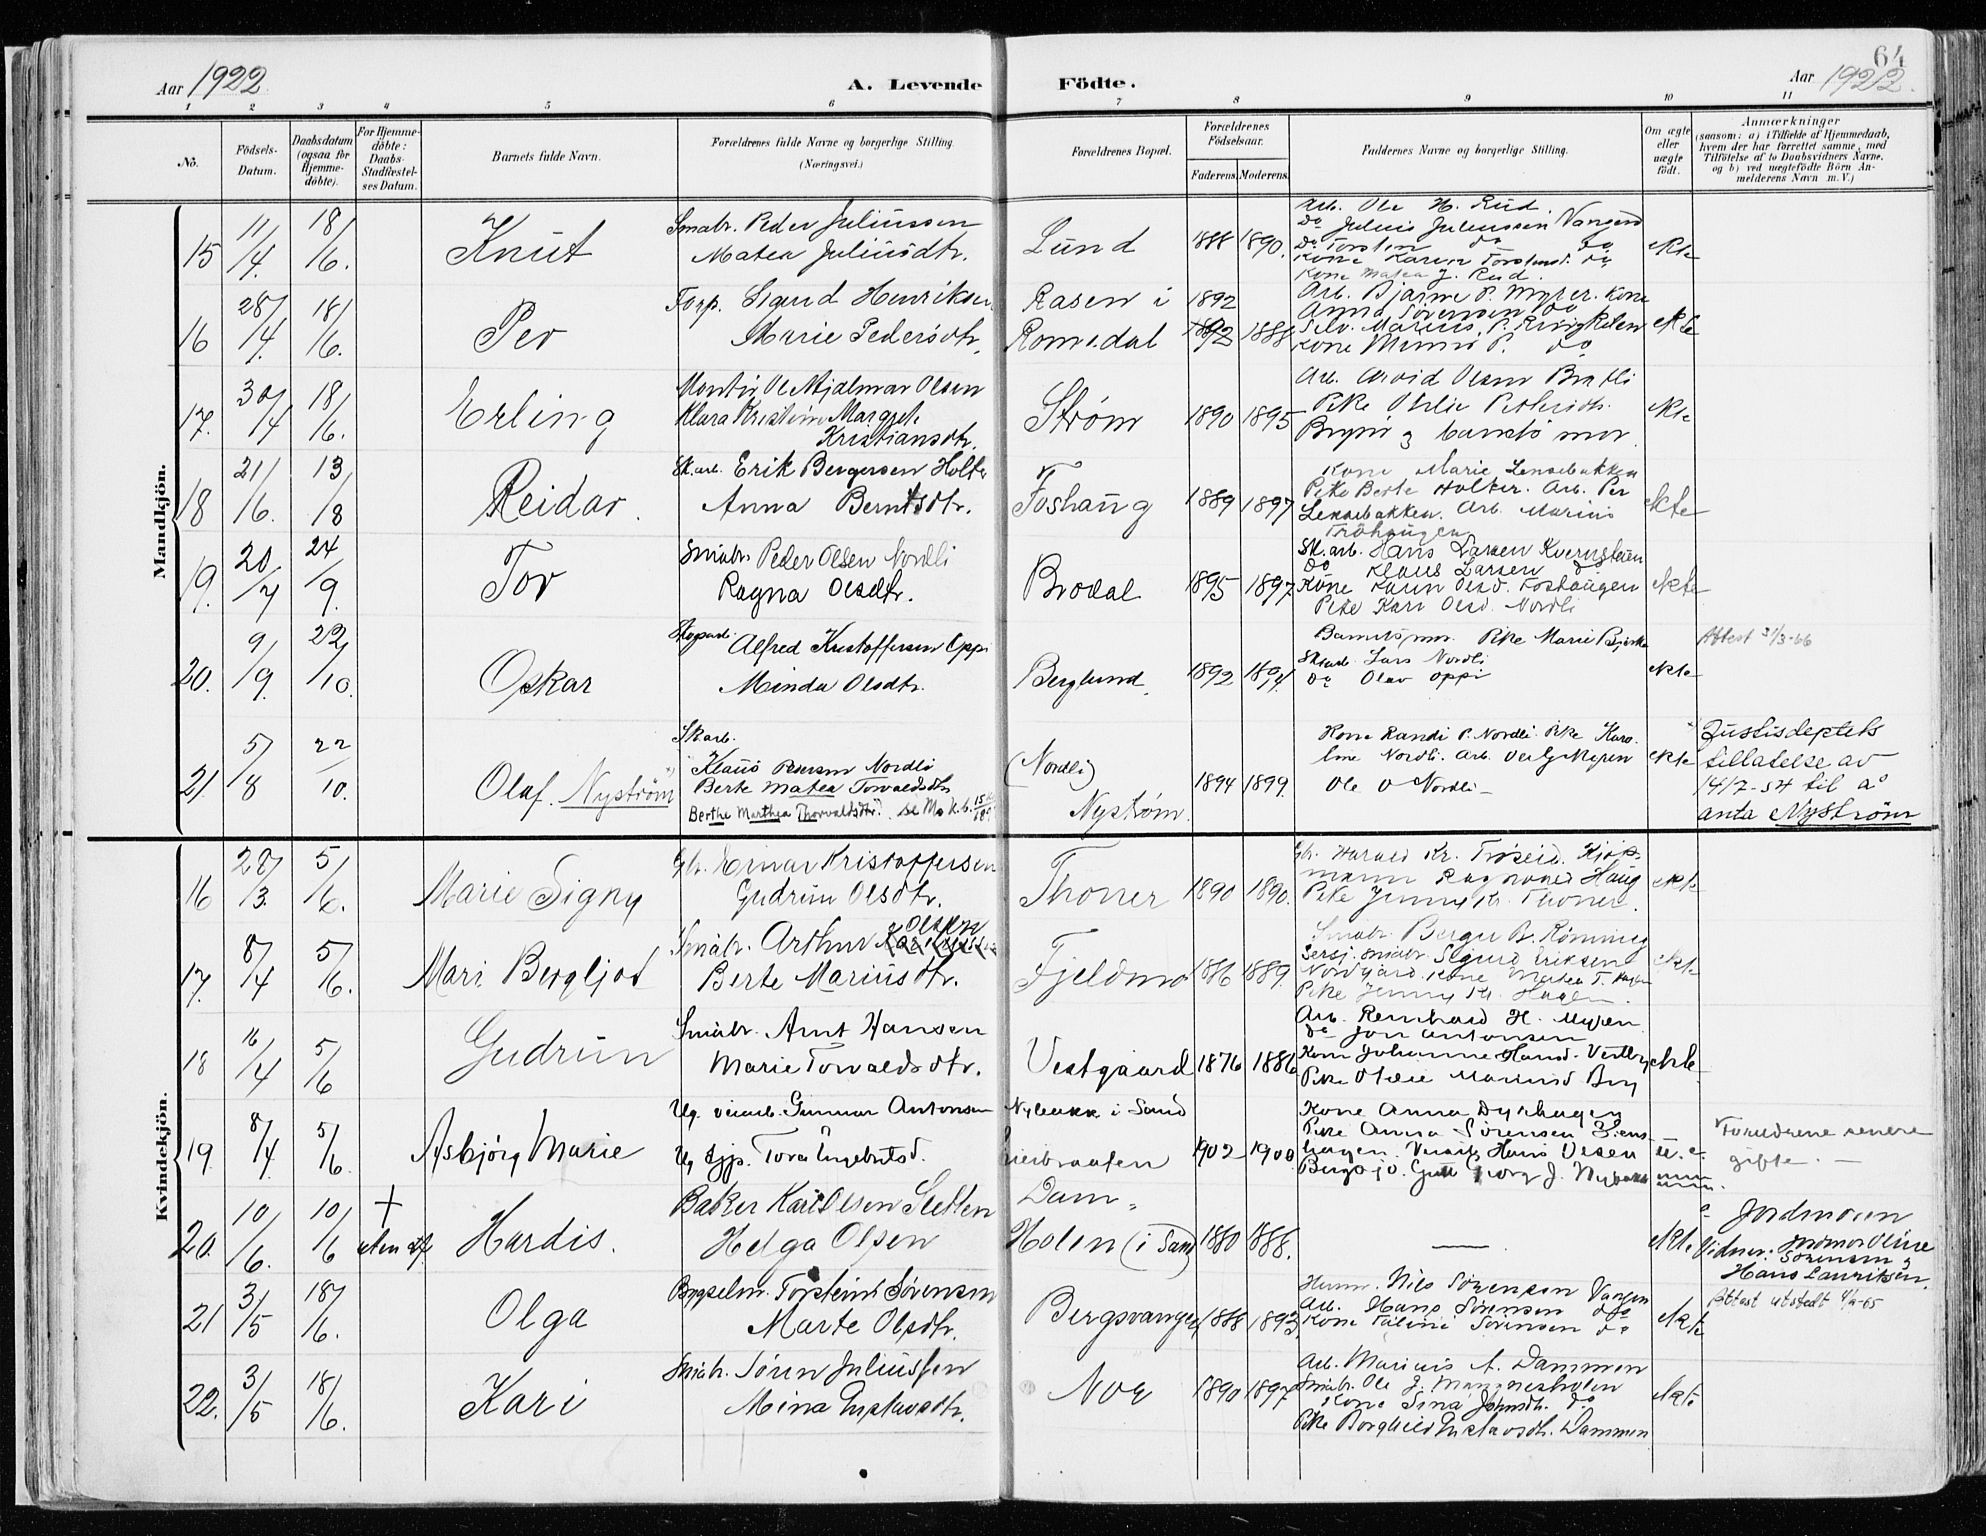 64
Aar 1922
A. Levende Födte.
Aar 1922.
1 2 3 4 5 6 7 8 9 10 11
Nô.
Födsels-
Datum.
Daabsdatum
(ogsaa for
Hjemme-
döbte).
For Hjemme-
döbte:
Daabs-
Stadfæstel-
ses Datum.
Barnets fulde Navn.
Forældrenes fulde Navne og borgerlige Stilling.
(Næringsvei.)
Forældrenes Bopæl.
Forældrenes
Födselsaar.
Faderens. Moderens.
Faddernes Navne og borgerlige Stilling.
Om ægte
eller
uægte
födt.
Anmærkninger
(saasom: a) i Tilfælde af Hjemmedaab,
hvem der har forrettet samme, med
Tilföielse af to Daabsvidners Navne,
og b) ved uægtefödte Börn An-
melderens Navn m. V.)
Mandkjön.
15 11/4. 18/6. Knut
Smabr. Peder Juliussen
Matea Juliusdtr.
Lund 1888 1890.
Arb. Ole H. Rud.
Do Julius Juliussen Vangen
Do Torsten do do
Kone Karen Torstensd. do
Kone Matea J. Rud.
Ekte
16 28/4. 18/6. Per
Torp. Sigurd Henriksen
Marie Pedersdtr.
Rasen i
Romedal
1892
1892 1888
Arb. Bjarne P. Myrer. Kone
Anna Sörensen do
Selv. Marius P.
Kone Minna P. do
Ekte
17. 30/4 18/6. Erling
Montör Ole Hjalmar Olsen
Klara Kristine Margret
Kristiansdtr.
Ström 1890 1895
Arb. Arvid Olsen Bratli
Pike Othilie Pettersdtr.
og barnets mor.
Ekte
18 21/6. 13/8 Reidar.
Sk.arb. Erik Bergersen Holter
Anna Berntsdtr.
Foshaug 1889 1897
Kone Marie Lensebakken
Pike Berte Holter. Arb. Per
Lensebakken. Arb. Marius
Fröhaugen
Ekte
19. 20/7 24/9. Tor
Smabr. Peder Olsen Nordli
Ragna Olsdtr.
Brodal 1895 1897
Sk.arb. Hans Larsen Kvernstuen
Do Klaus Larsen do
Kone Karen Olsd. Foshaugen
Pike Kari Olsd. Nordli
Ekte
20. 9/9. 22/10. Oskar
Alfred Kristoffersen Oppi
Minda Olsdtr.
Berglund 1892 1894.
Barnets mor. Pike Marie Bjerke
Skarb. Lars Nordli
Do Olav Oppi
Ekte
Attest 31/3-66
21. 5/8 22/10. Olaf. Nyström
Skarb.
Klaus Pedersen Nordli
Berte Matea Torvaldsdtr
Berthe Marthea Thorvaldsdtr.
(Nordli)
Nyström.
1894 1899.
Kone Randi P. Nordli. Pike Karo-
line Nordli. Arb. Myren
Ole O Nordli
Ekte
Justisdeptets
tillatelse av
14/7-54 til å
anta Nyström
Kvindekjön.
16 28/3. 5/6. Marie Signy
Gbr. Einar Kristoffersen
Gudrun Olsdtr.
Thoner 1890 1890.
Gbr. Harald Kr. Tröseid. Kjöp-
mann Ragnvald Haug
Pike Jenny Kr. Thoner.
Ekte
17. 8/4 5/6. Mari Bergljot
Olsen
Smabr. Arthur
Berte Mariusdtr.
Fjeldmo 1886 1889.
Smabr. Berger B. Rönning
Sersj. Smabr. Sigurd Eriksen
Nordgård. Kone Matea T.
Pike Jenny Kr. Hagen.
Ekte
18 16/4 5/6 Gudrun
Smabr. Arnt Hansen
Marie Torvaldsdtr.
Vestgaard 1876 1886
Arb. Reinhard H. Myren.
Do Jon Antonsen
Kone Johanne Hansd.
Pike Otelie Mariusd Berg
Ekte.
19. 8/4. 5/6. Asbjörg Marie
Ug. veiarb. Gunnar Antonsen
Ug tjp. Tora Engebretsd.
Nybakk i Sand
1902 1900
Kone Anna Dyrhagen
Pike Anna Sörensen
Hans Olsen
Georg J. Nybakk
u. e.
Foreldrene senere
gifte.
20. 10/6. 10/6 + uten dåp Hardis.
Baker Karl Olsen Sletten
Helga Olsen
Dam
Holen (i Sand) 1880 1888.
Ekte
Jordmoren
Vidner. Jordmor Oline
Sörensen og
Hans Lauritsen.
21 3/5 18/6. Olga
Torstein Sörensen
Marte Olsdtr.
Bergsvangen 1888 1893.
Husm. Nils Sörensen Vangen
Arb. Hans Sörensen do
Kone Paline Sörensen do
Ekte
Attest utstedt 4/9-65
22. 3/5 18/6. Kari
Smabr. Sören Juliussen
Mina Gustavsdtr.
Noe 1890 1897
Arb. Marius A. Dammen
Smabr. Ole J. Mangnesholen
Kone Sina Johnsdtr. do
Pike Borghild Gustavsdtr. Dammen
Ekte